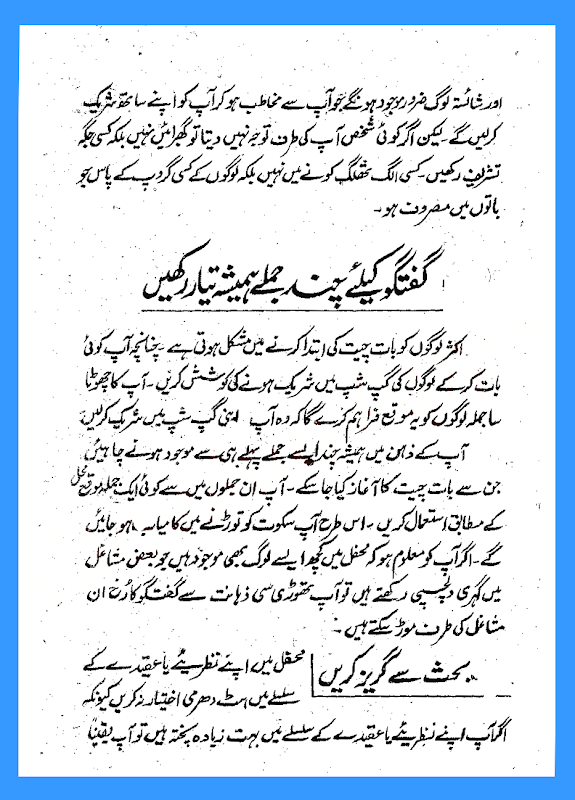 اور شائستہ لوگ ضرور موجود ہونگے جو آپ سے مخاطب ہو کر آپ کو اپنے ساتھ شریک
کرلیں گے ۔ لیکن اگر کوئی شخص آپ کی طرف توجہ نہیں دیتا تو گھبرائیں نہیں بلکہ کسی جگہ
تشریف رکھیں ۔ کسی الگ تھلگ کونے میں نہیں بلکہ لوگوں کے کسی گروپ کے پاس جو
باتوں میں مصروف ہو ۔
گفتگو کیلئے چند جملے ہمیشہ تیار رکھیں
اکثر لوگوں کو بات چیت کی ابتدا کرنے میں مشکل ہوتی ہے ۔ چنانچہ آپ کوئی
بات کر کے لوگوں کی گپ شپ میں شریک ہونے کی کوشش کریں ۔ آپ کا چھوٹا
سا جملہ لوگوں کو یہ موقع فراہم کرے گا کہ وہ آپ اپنی گپ شپ میں شریک کرلیں
آپ کے ذہن میں ہمیشہ چند ایسے جملے پہلے ہی سے موجود ہونے چاہئیں
جن سے بات چیت کا آغاز کیا جا سکے ۔ آپ ان جملوں میں سے کوئی ایک جملہ موقع محل
کے مطابق استعمال کریں ۔ اس طرح آپ سکوت کو توڑنے میں کامیاب ہو جائیں
گے ۔ اگر آپ کو معلوم ہو کہ محفل میں کچھ ایسے لوگ بھی موجود ہیں جو بعض مشاغل
میں گہری دلچسپی رکھتے ہیں تو آپ تھوڑی سی ذہانت سے گفتگو کا رخ ان
مشاغل کی طرف موڑ سکتے ہیں ۔
بحث سے گریز کریں
محفل میں اپنے نظریئے یا عقیدے کے
سلسلے میں ہٹ دھرمی اختیار نہ کریں کیونکہ
اگر آپ اپنے نظریئے یا عقیدے کے سلسلے میں بہت زیادہ پختہ ہیں تو آپ یقیناً